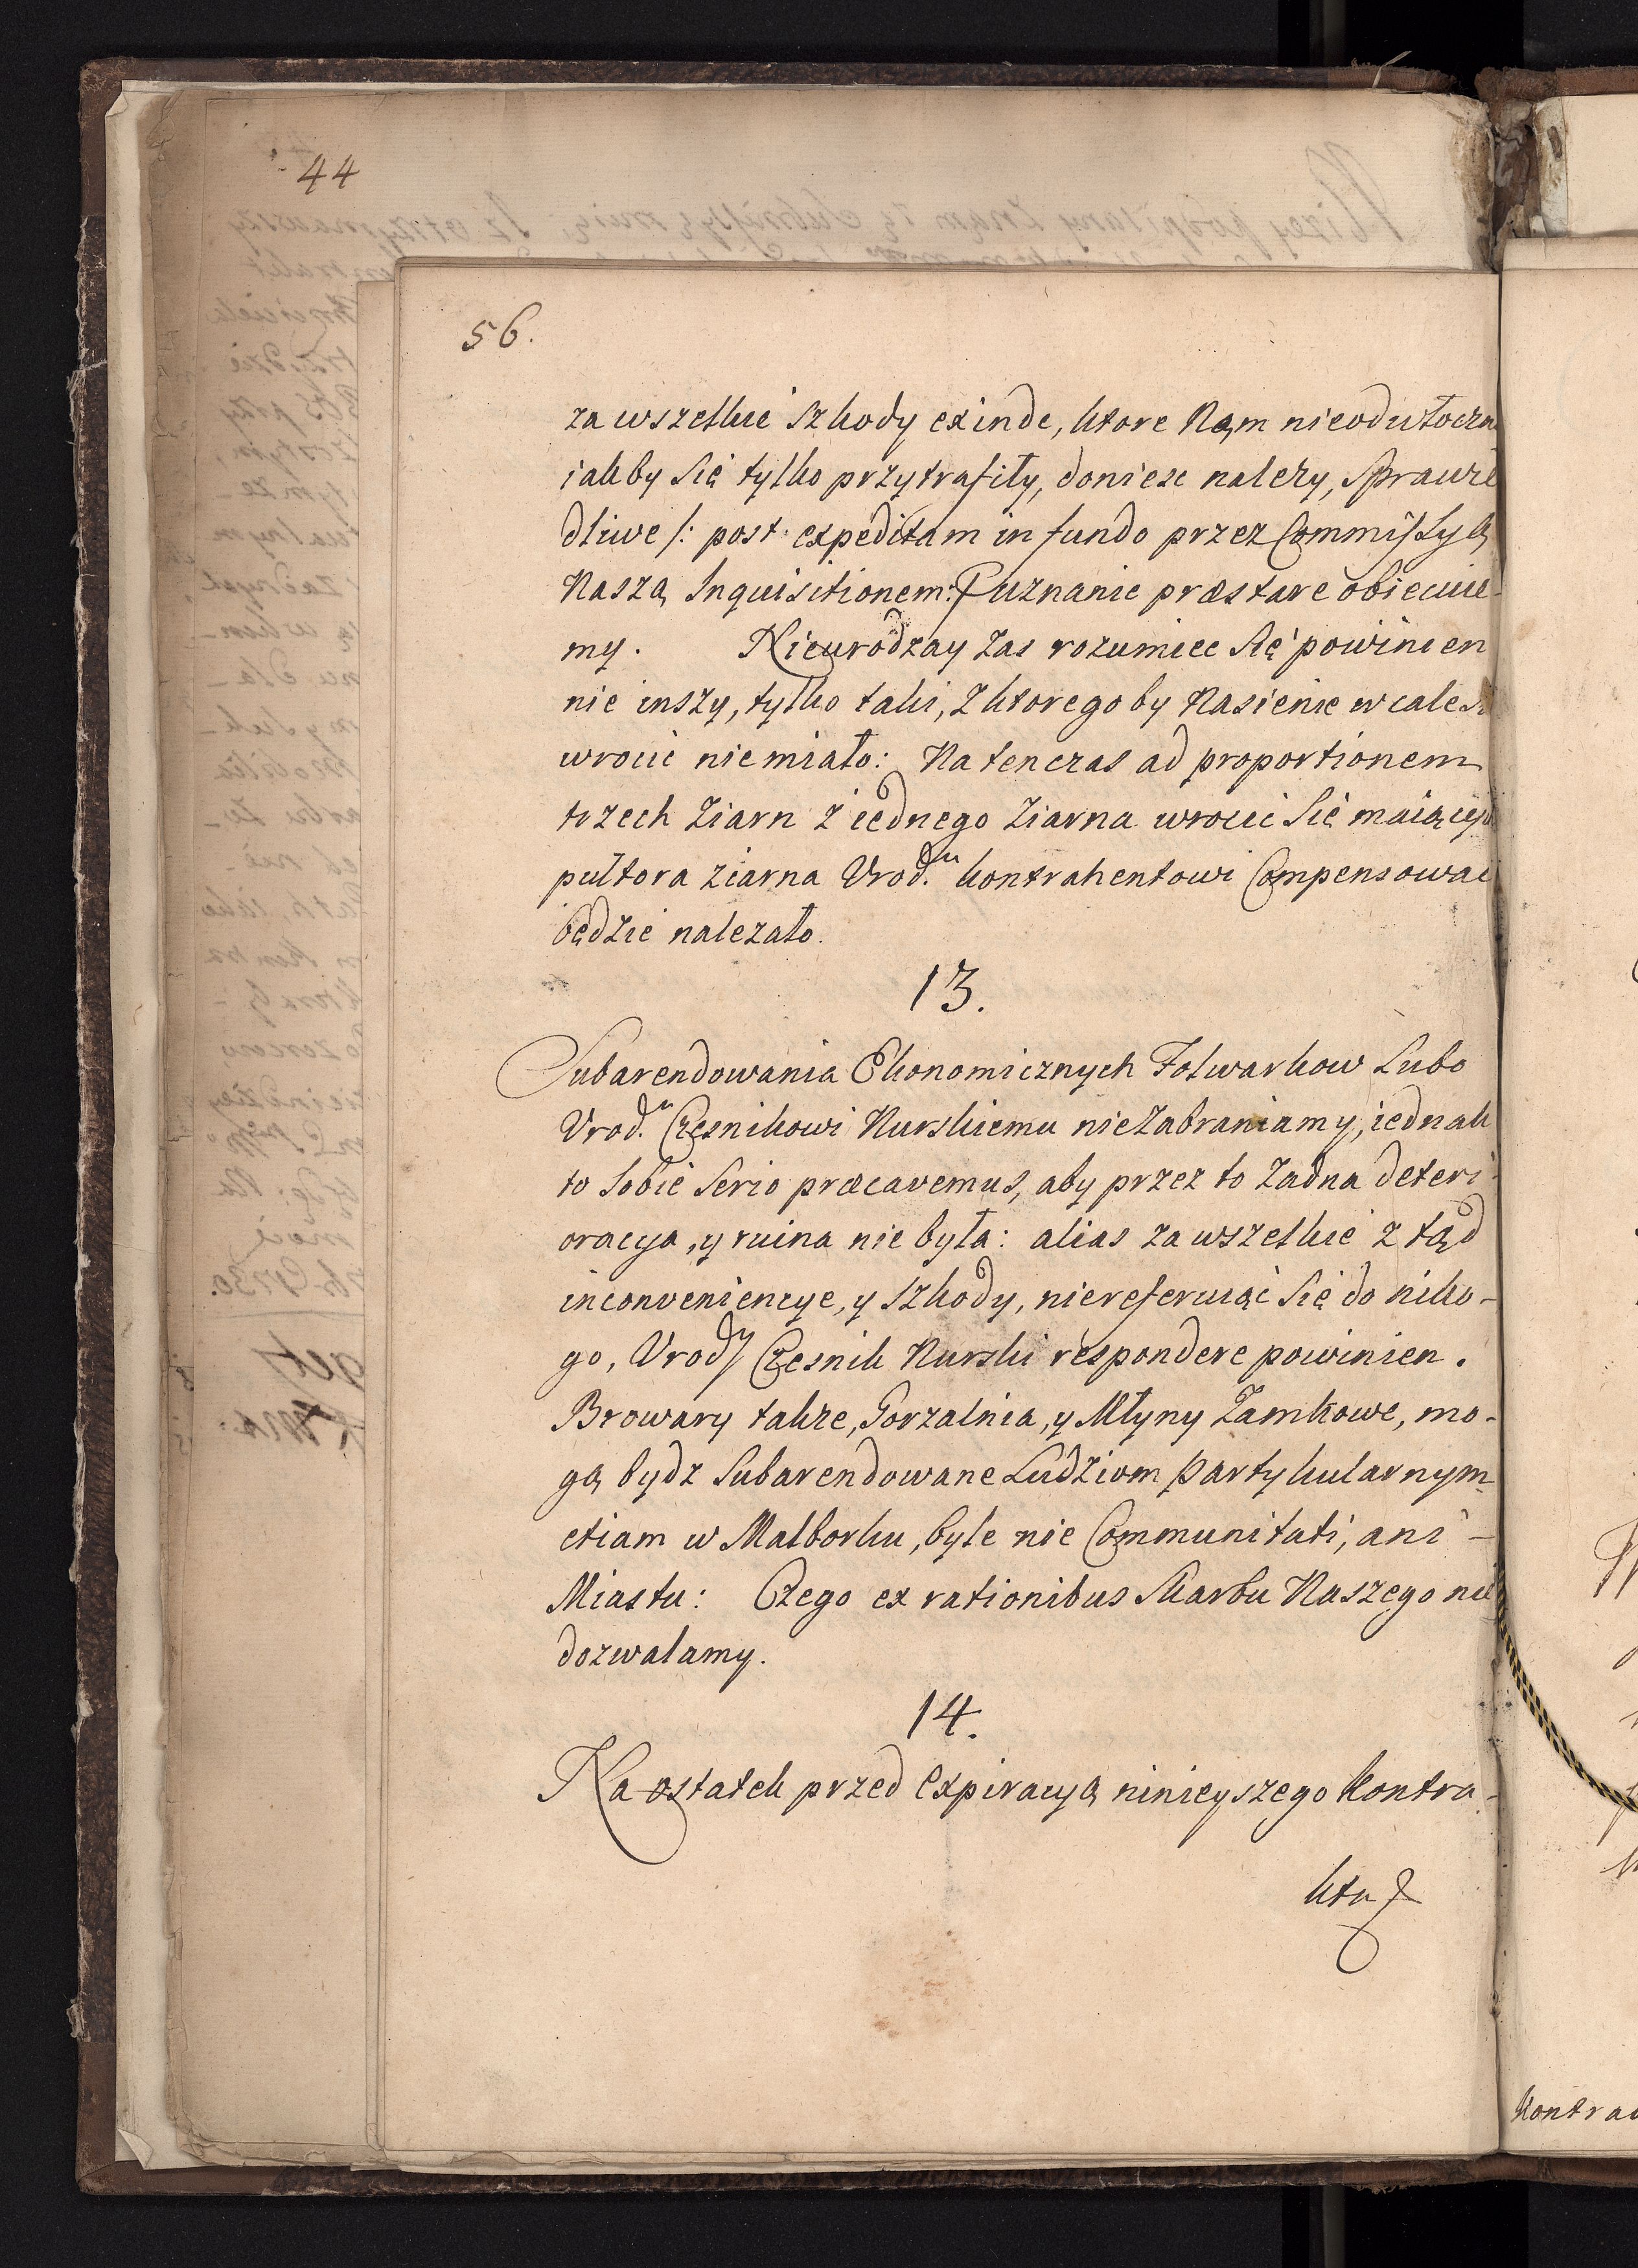 44
56.
za wszelkie szkody exinde, ktore Nam nieodwłoczn
iakby się tylko przytrafiły, doniesc nalezy, sprawie
dliwe /: post expeditam in fundo przez Commissyą
Naszą Inquisitionem :/ uznanie præstare obiecuie-
my. Nieurodzay zas rozumiec się powinien
nie inszy, tylko taki, z ktorego by Nasienie wcale si
wrocic nie miało: Na tenczas ad proportionem
trzech ziarn z iednego ziarna wrocic się maiących
pułtora ziarna Urod.u kontrahentowi Compensowac
będzie nalezało.
13.
Subarendowania Ekonomicznych Folwarkow Lubo
Urod.u Czesnikowi Nurskiemu nie zabraniamy, iednak
to sobie serio præcavemus, aby przez to zadna deteri-
oracya, y ruina nie była: alias za wszelkie z tąd
inconveniencye, y szkody, niereferuiąc się do niko-
go, Urody Czesnik Nurski respondere powinien.
Browary takze, Gorzalnia, y Młyny Zamkowe, mo-
gą bydz subarendowane Ludziom partykularnym
etiam w Malborku, byle nie Communitati, ani -
Miastu: Czego ex rationibus Skarbu Naszego nie
dozwalamy.
14.
Na ostatek przed expiracyą ninieyszego kontra-
ktu